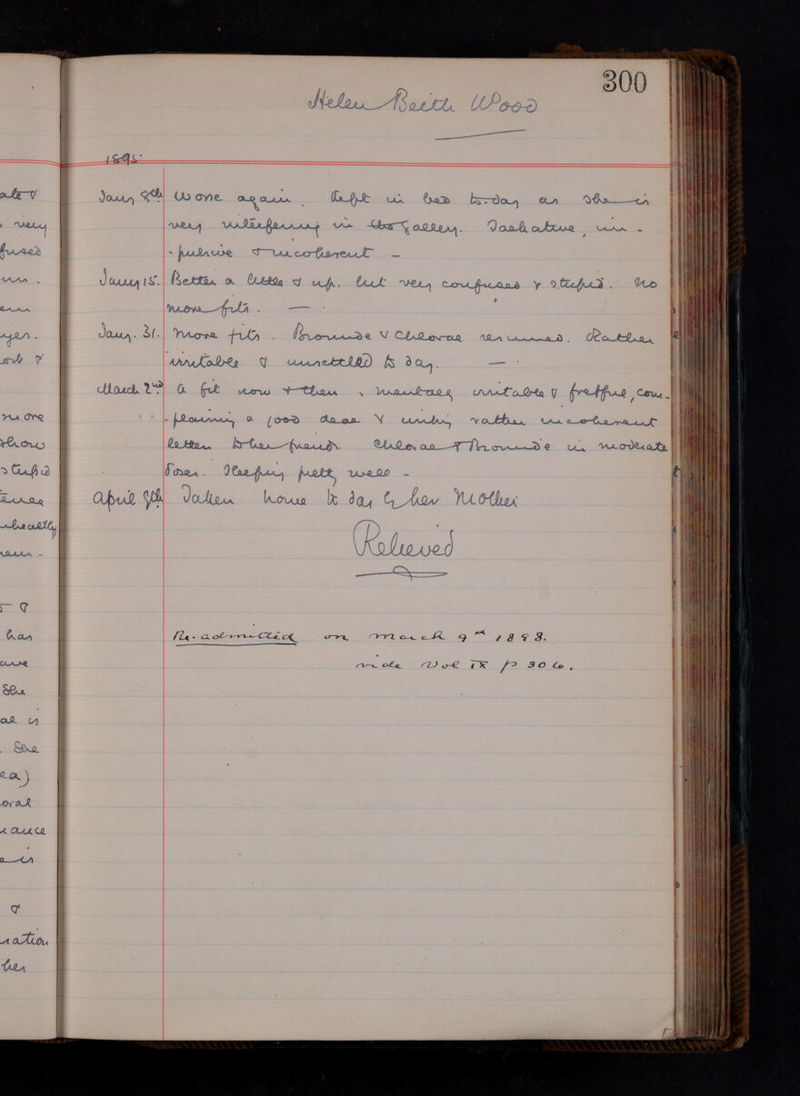 300
Helen Beith Wood
1895.
ate &
Jany 8th Worse again. Kept in bed to-day as she is
very
very interfering in the Galley. Talkative, im-
fused
-pulsive & incoherent -
Jany 15. Better a little & up. but very confused & stupid. No
more fits. —
yer.
Jany. 31. More fits. Bromide & Chloral resumed. Rather
irritable & unsettled to day. —
March 2nd A fit now & then, mentally irritable & fretful, com-
more
-plaining a good deal & writing rather incoherent
show
letters to her friends. Chloral & Bromide in moderate
stupid
doses. Sleeping pretty well -
April 9th Taken home to day by her Mother
Relieved
&
has
Re-admitted on March 9th 1898.
vide Vol IX p 306.
She
al is
She
ea)
oral
&
her